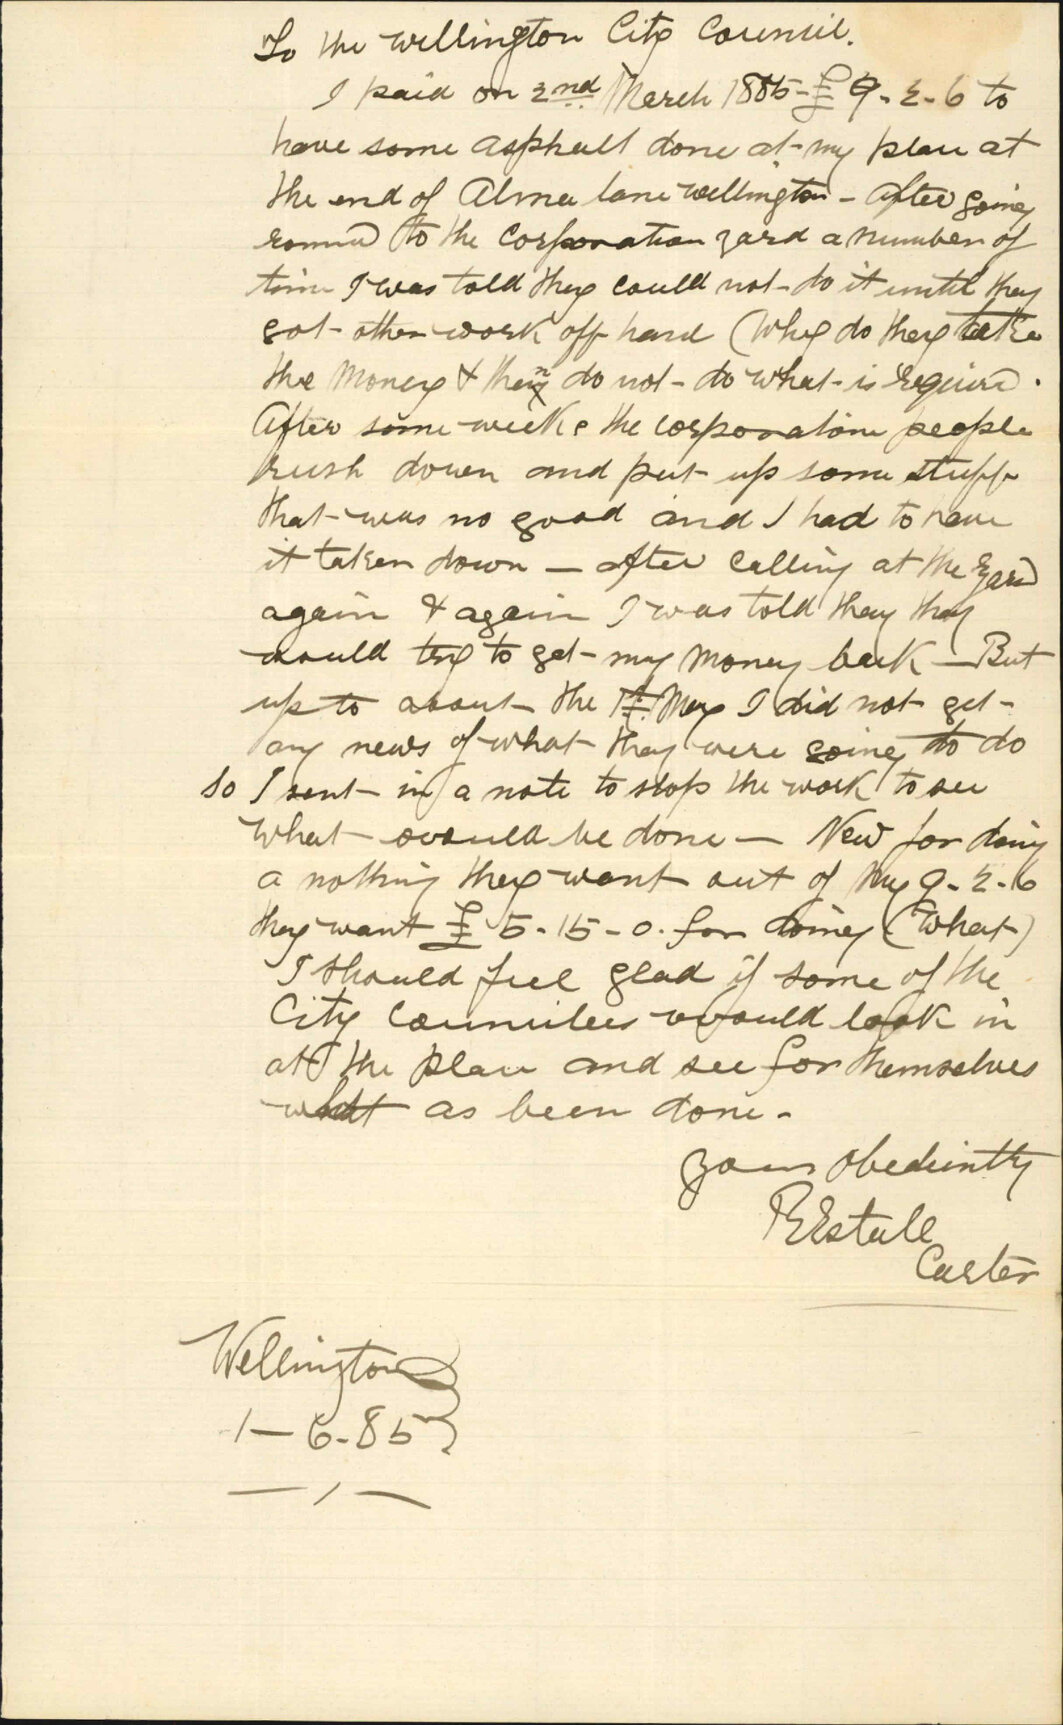 To the Wellington City Council.
I paid on 2nd March 1885 - £ 9 - 2 - 6 to
have some asphalt done at my place at
the end of Alma lane Wellington - After going
round to the Corporation yard a number of
time I was told they could not do it until they
got other work off hand (Why do they take
the money & then do not do what is required.
After some weeks the corporation people
rush down and put up some stuff
that was no good and I had to have
it taken down — after calling at the yard
again & again I was told they they
would try to get my money back — But
up to about the 1st May I did not get
any news of what they were going to do
So I sent in a note to stop the work to see
what would be done — Now for doing
a nothing they want out of my 9 - 2 - 6
they want £ 5 - 15 - 0. for doing (What)
I should feel glad if some of the
City Councilers would look in
at the place and see for themselves
what as been done -
Yours obediently
Carter
Wellington
1 - 6 - 85